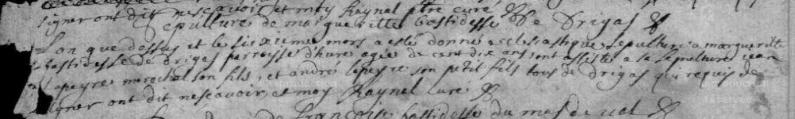 signer ont dit nescavoir et moy Raynel ptre curé
sepulture de margueritte bastidesse de Drigas
L'an que dessus et le sixieme mars a esté donnée eclesiastique sepulture a margueritte
bastidesse de drigas parroisse d'hure agée de cent dix ans ont assisté a la sepulture jean
lapeyre marechal son fils, et andré lapeyre son petit fils tous de drigas qui requis de
signer ont dit nescavoir et moy Raynel curé
françois bastide du mas de val